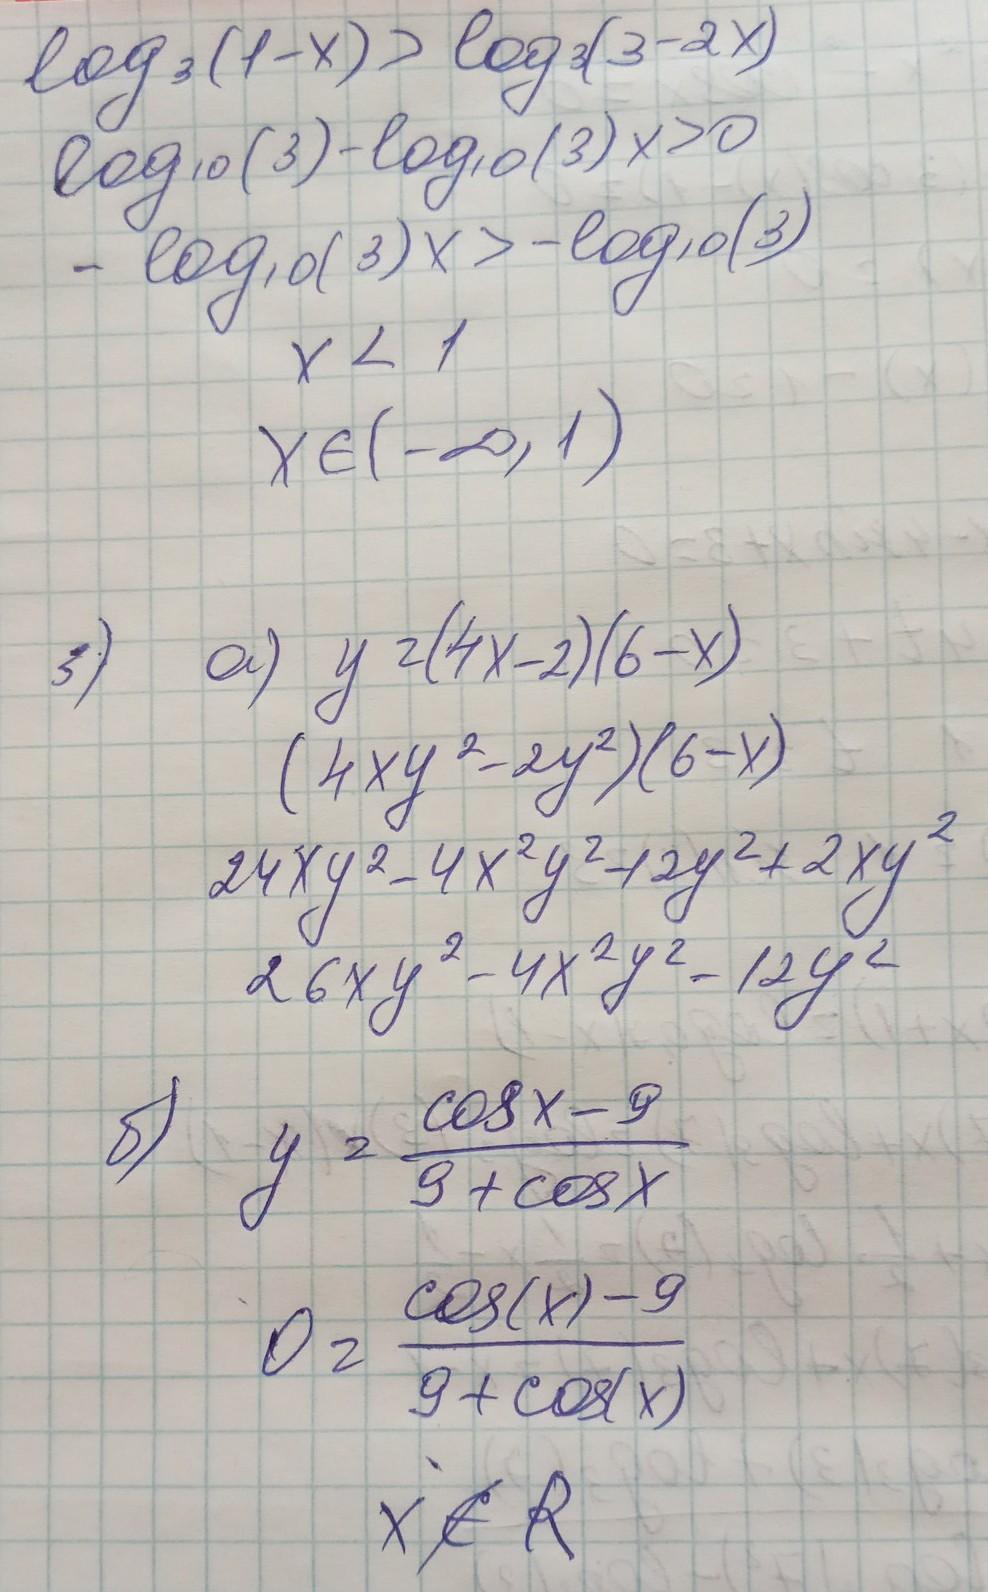 log₃(1-x) > log₃(3-2x)
log₁₀(3)-log₁₀(3)x>0
- log₁₀(3)x > -log₁₀(3)
x < 1
x∈(-∞, 1)
3) а) y = (4x-2)(6-x)
(4xy²-2y²)(6-x)
24xy²-4x²y²-12y²+2xy²
26xy²-4x²y²-12y²
б) y = (cosx-9)/(9+cosx)
0 = (cos(x)-9)/(9+cos(x))
x∉R